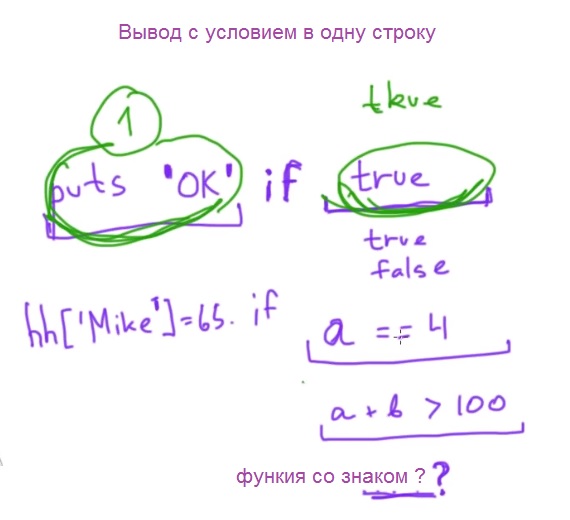 Вывод с условием в одну строку
tkve
1
puts 'OK' if true
true
false
hh['Mike']=65. if a == 4
a + b > 100
функия со знаком ? ?